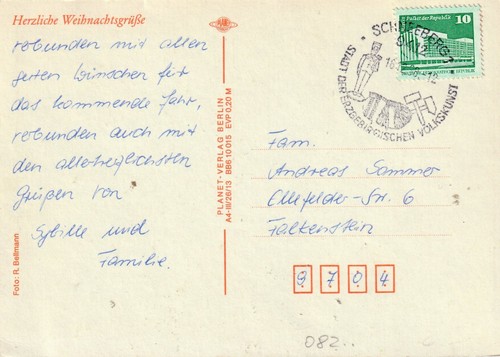 Herzliche Weihnachtsgrüße
verbunden mit allen
guten Wünschen für
das kommende Jahr,
verbunden auch mit
den allerherzlichsten
Grüßen von
Sybille und
Familie.
Foto: R. Bellmann
PLANET-VERLAG BERLIN
A4-III/26/13 BB6 10 015 EVP 0,20 M
SCHNEEBERG 1
STADT DER ERZGEBIRGISCHEN VOLKSKUNST
Palast der Republik
10
Fam.
Andreas Sammer
Ellefelder-Str. 6
Falkenstein
9704
082..